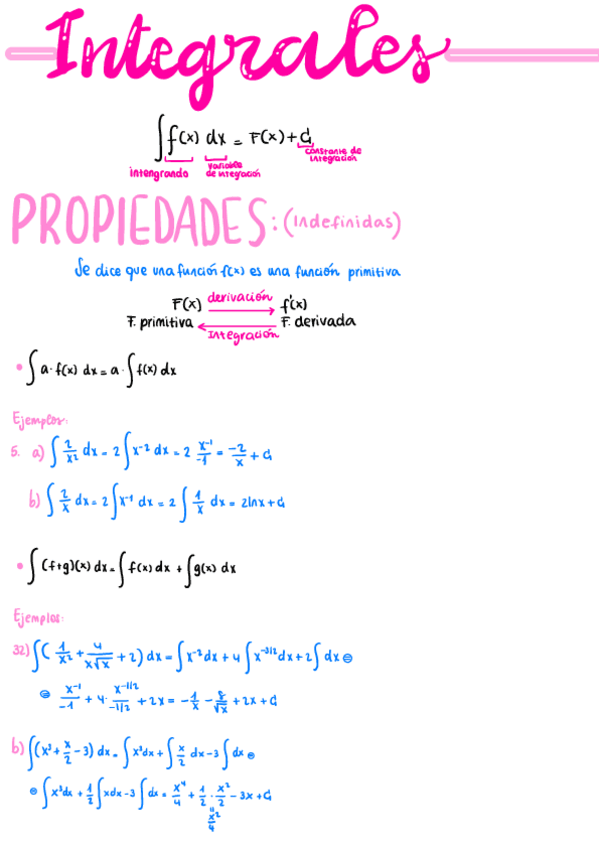 Integrales
∫f(x) dx = F(x)+C
intengrando
variable de integración
constante de integración
PROPIEDADES: (Indefinidas)
Se dice que una función f(x) es una función primitiva
F(x) derivación f'(x)
F. primitiva Integración F. derivada
• ∫a·f(x) dx = a·∫f(x) dx
Ejemplos:
5. a) ∫2/x² dx = 2∫x⁻² dx = 2 x⁻¹/-1 = -2/x + C
b) ∫2/x dx = 2∫x⁻¹ dx = 2∫1/x dx = 2lnx + C
• ∫(f+g)(x) dx = ∫f(x) dx + ∫g(x) dx
Ejemplos:
32) ∫(1/x² + 4/x√x + 2) dx = ∫x⁻² dx + 4∫x⁻³/² dx + 2∫dx ⊜
⊜ x⁻¹/-1 + 4· x⁻¹/²/-1/2 + 2x = -1/x - 8/√x + 2x + C
b) ∫(x³ + x/2 - 3) dx = ∫x³dx + ∫x/2 dx - 3∫dx ⊜
⊜ ∫x³dx + 1/2∫xdx - 3∫dx = x⁴/4 + 1/2 · x²/2 - 3x + C
"
x²/4